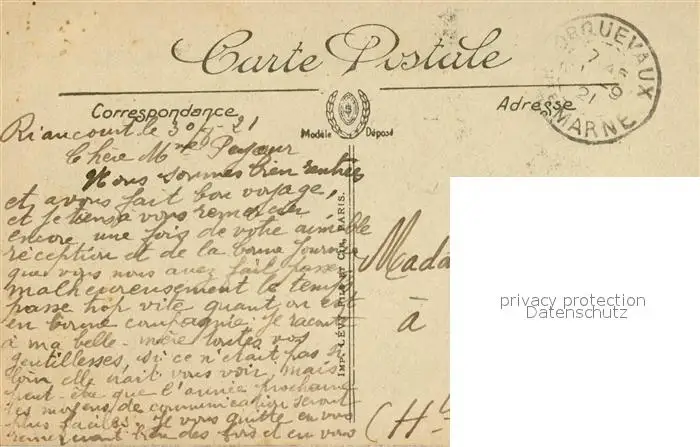 Carte Postale
ORQUEVAUX
MARNE
Correspondance
Adresse
Modèle Déposé
Riaucourt le 30/7-21
Chère Mme
Nous sommes bien rentrés
et avons fait bon voyage,
et je tiens à vous remercier
encore une fois de votre aimable
réception et de la bonne journée
que vous nous avez fait passer
malheureusement le temps
passe trop vite quant on est
en bonne compagnie. Je raconte
à ma belle-mère toutes vos
gentillesses, si ce n'était pas si
loin elle irait vous voir, mais
peut-être que l'année prochaine
les moyens de communication seront
plus faciles. Je vous quitte en vous
remerciant bien des fois et en vous
IMP. LÉVY FILS ET CIE, PARIS.
Mada
à
(Hte
privacy protection
Datenschutz